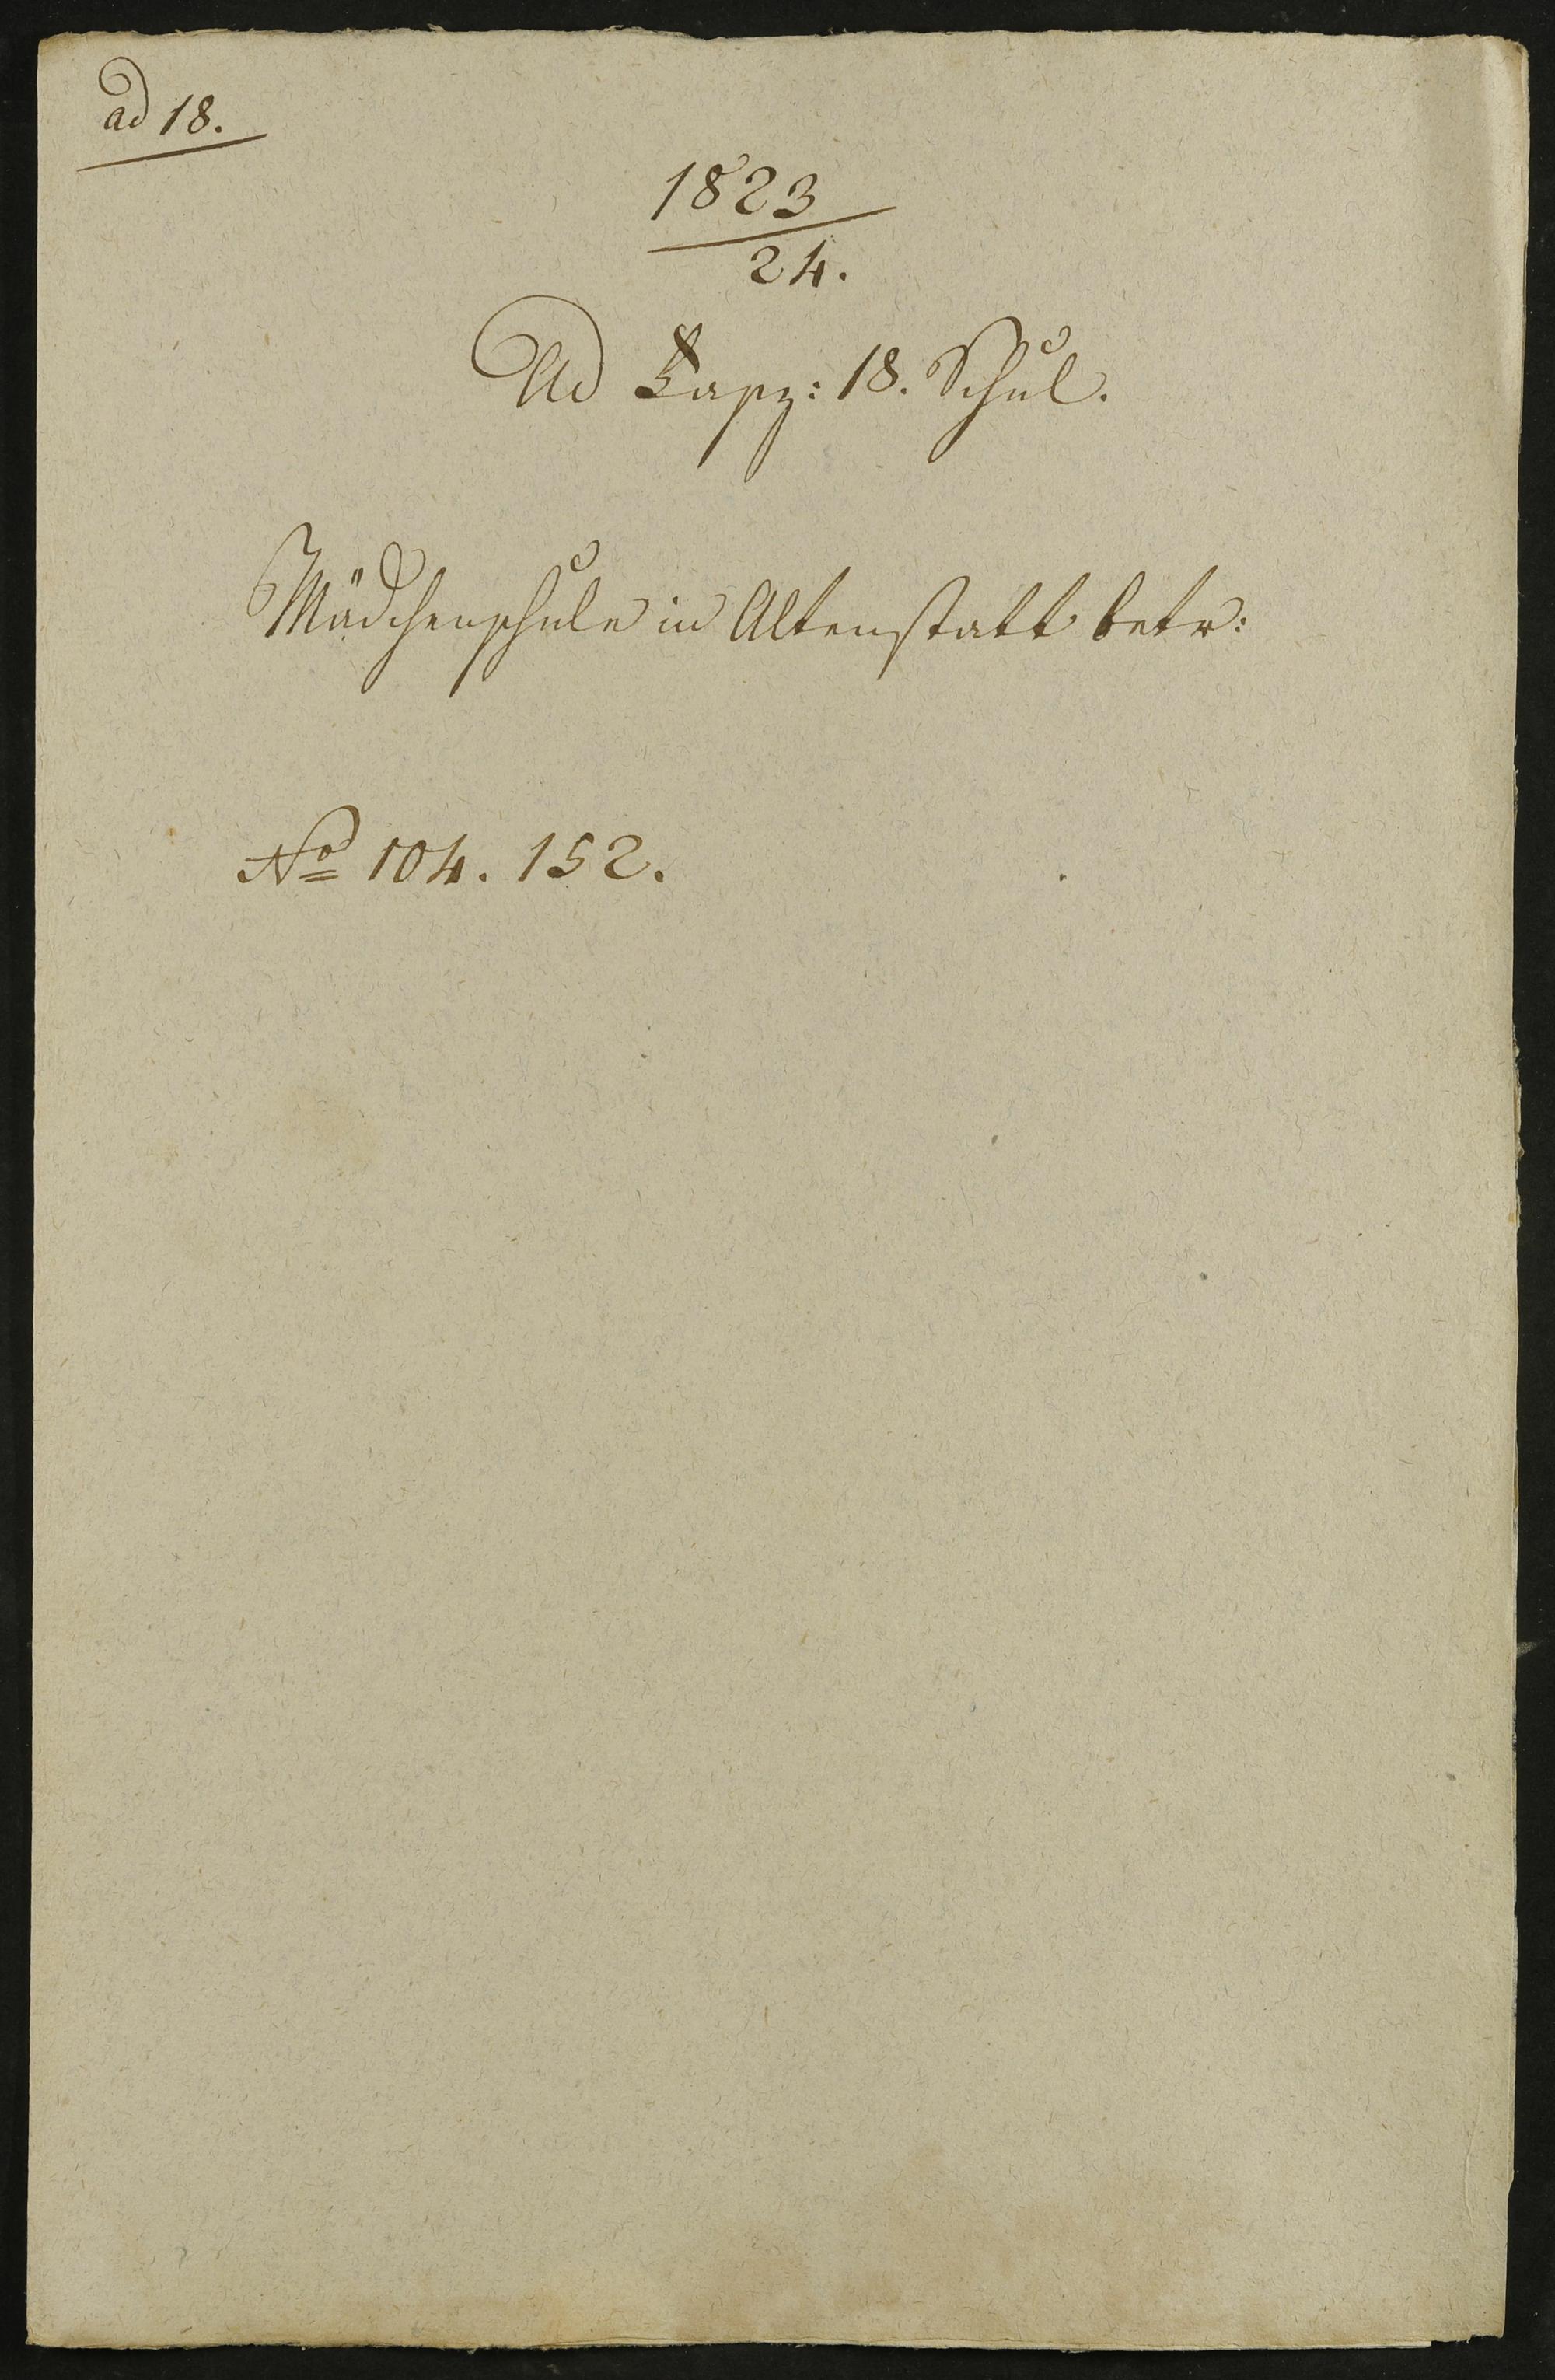 ad 18.
1823
24.
Ad Fasz: 18. Schul.
Mädchenschule in Altenstatt betr:
No 104. 152.